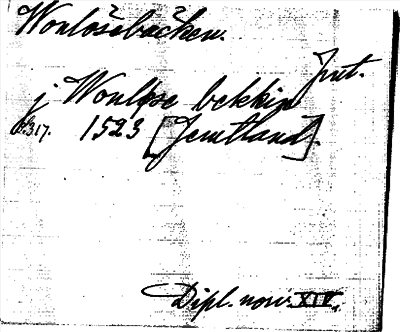 Wonlösebäcken.
Jmt.
j Wonløse bekkin
s. 317. 1523 [Jemtland].
Dipl. norv. XIV.